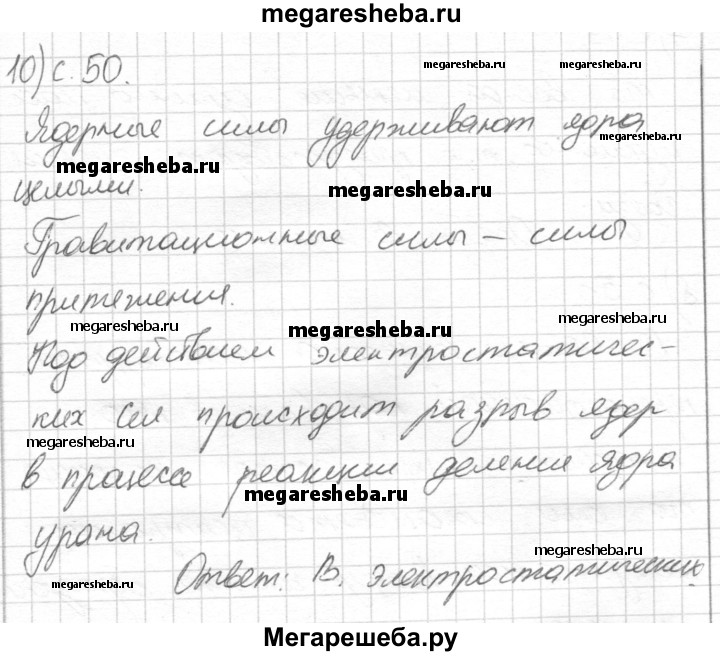 megaresheba.ru
10) с. 50.
megaresheba.ru megaresheba.ru
Ядерные силы удерживают ядра
megaresheba.ru
megaresheba.ru
целыми.
megaresheba.ru
Гравитационные силы – силы
притяжения.
megaresheba.ru megaresheba.ru megaresheba.ru
Под действием электростатичес-
ких сил происходит разрыв ядер
megaresheba.ru
в процессе реакции деления ядра
megaresheba.ru
урана.
megaresheba.ru
Ответ: В. электростатических.
megaresheba.ru megaresheba.ru
Мегарешеба.ру